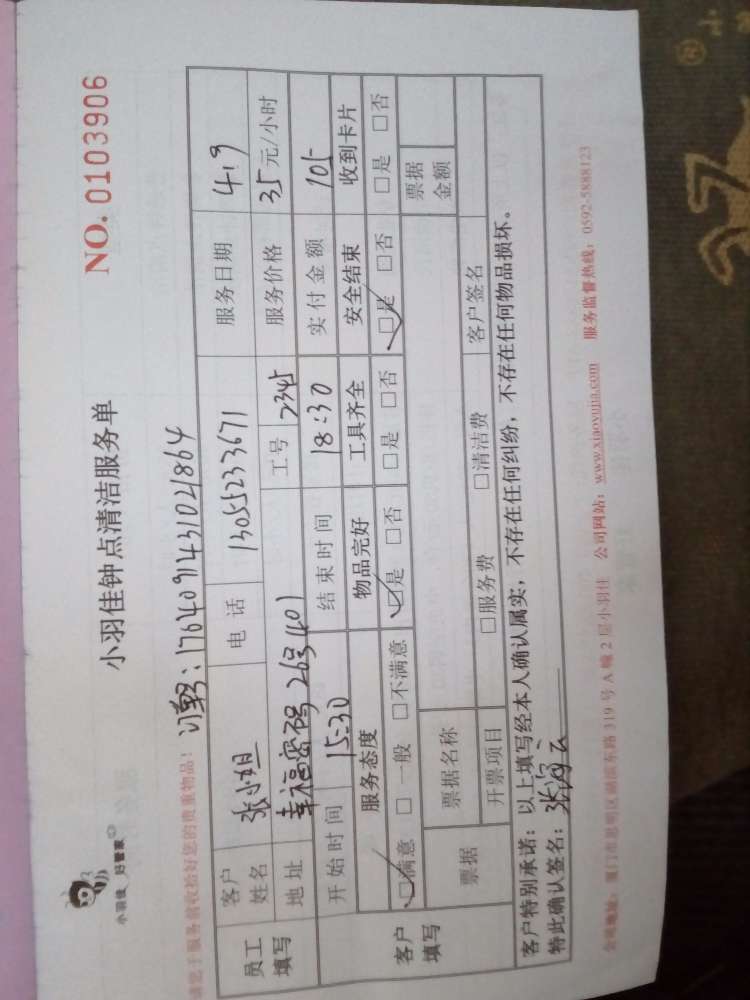 小羽佳 好管家
小羽佳钟点清洁服务单
NO. 0103906
请您于服务前收拾好您的贵重物品! 订单号:1764091431021864
员工填写 客户姓名 张小姐 电话 13055233671 服务日期 4.19
地址 幸福密码 263401 工号 2345 服务价格 35元/小时
客户填写 开始时间 15:30 结束时间 18:30 实付金额 105
服务态度 物品完好 工具齐全 安全结束 收到卡片
☑满意 □一般 □不满意 ☑是 □否 □是 □否 ☑是 □否 □是 □否
票据 票据名称 票据金额
开票项目 □服务费 □清洁费 客户签名
客户特别承诺:以上填写经本人确认属实,不存在任何纠纷,不存在任何物品损坏。
特此确认签名:
公司地址:厦门市思明区湖滨东路 319 号 A 幢 2 层小羽佳 公司网站:www.xiaoyujia.com 服务监督热线:0592-5888123